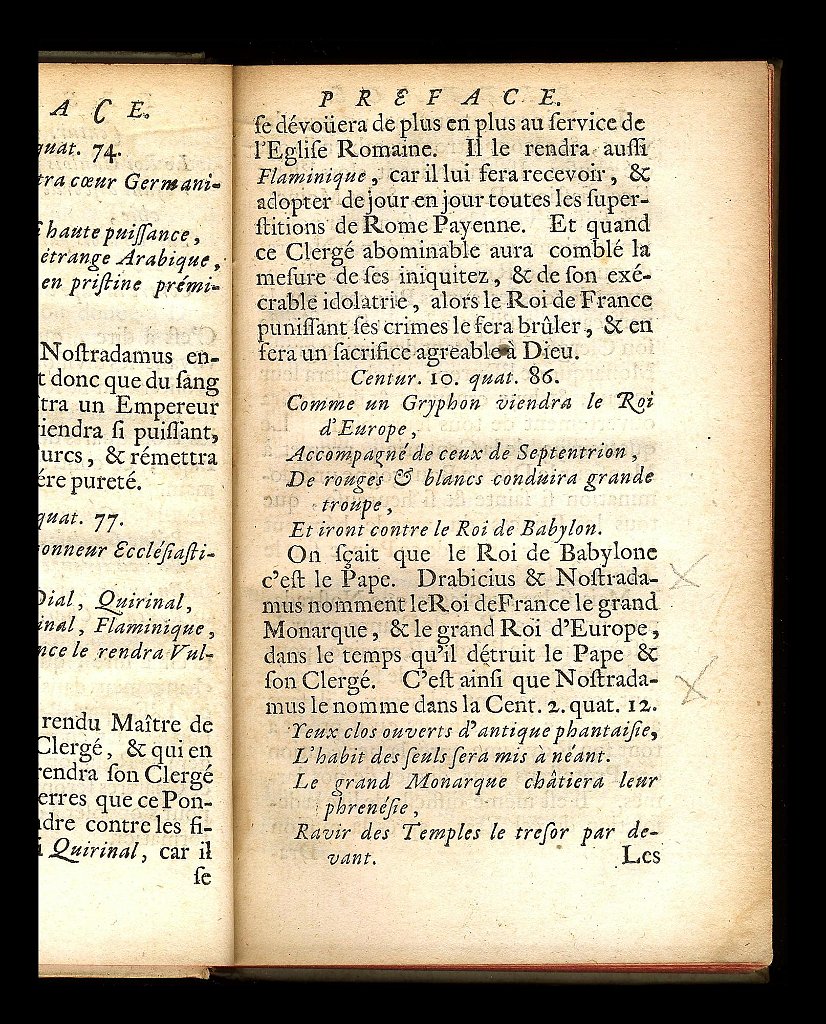 A C E.
quat. 74.
tra cœur Germani-
ſi haute puiſſance,
étrange Arabique,
en priſtine prémi-
Noſtradamus en-
t donc que du ſang
ſtra un Empereur
viendra ſi puiſſant,
urcs, & rémettra
ére pureté.
quat. 77.
onneur Eccléſiaſti-
Dial, Quirinal,
inal, Flaminique,
nce le rendra Vul-
rendu Maître de
Clergé, & qui en
rendra ſon Clergé
erres que ce Pon-
dre contre les fi-
i Quirinal, car il
ſe
P R E F A C E.
ſe dévoüera de plus en plus au ſervice de
l'Egliſe Romaine. Il le rendra auſſi
Flaminique, car il lui fera recevoir, &
adopter de jour en jour toutes les ſuper-
ſtitions de Rome Payenne. Et quand
ce Clergé abominable aura comblé la
meſure de ſes iniquitez, & de ſon exé-
crable idolatrie, alors le Roi de France
puniſſant ſes crimes le fera brûler, & en
fera un ſacrifice agreable à Dieu.
Centur. 10. quat. 86.
Comme un Gryphon viendra le Roi
d'Europe,
Accompagné de ceux de Septentrion,
De rouges & blancs conduira grande
troupe,
Et iront contre le Roi de Babylon.
On ſçait que le Roi de Babylone
c'eſt le Pape. Drabicius & Noſtrada-
mus nomment le Roi de France le grand
Monarque, & le grand Roi d'Europe,
dans le temps qu'il détruit le Pape &
ſon Clergé. C'eſt ainſi que Noſtrada-
mus le nomme dans la Cent. 2. quat. 12.
Yeux clos ouverts d'antique phantaiſie,
L'habit des ſeuls ſera mis à néant.
Le grand Monarque châtiera leur
phrenéſie,
Ravir des Temples le treſor par de-
vant.
Les